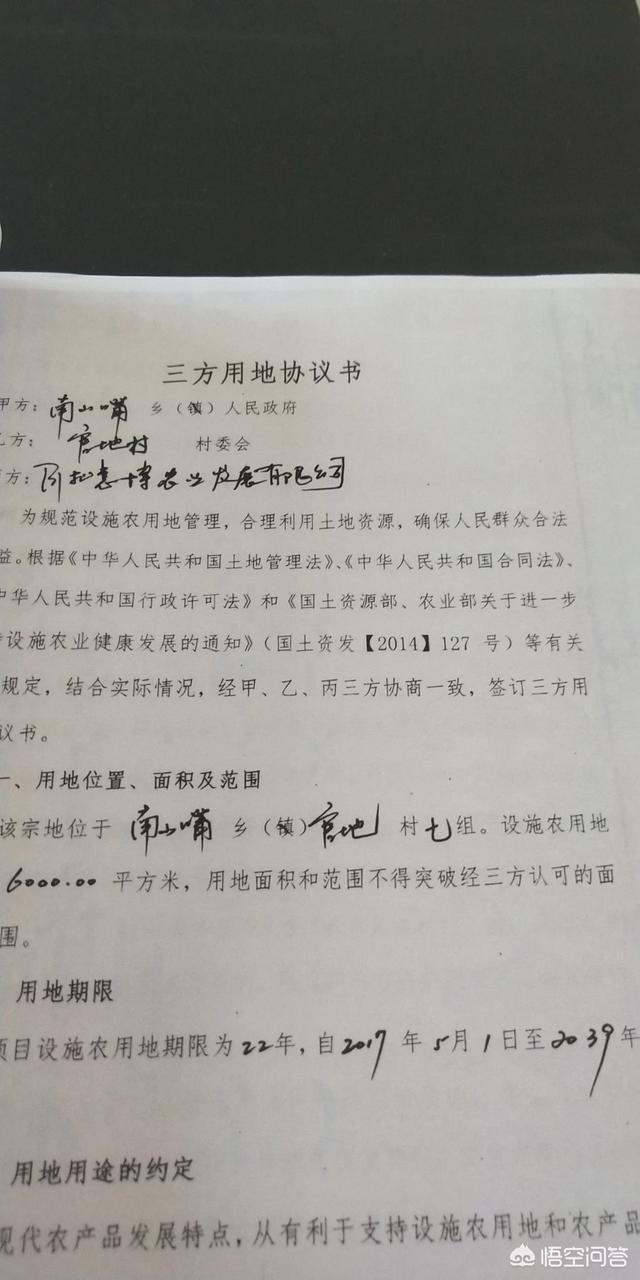 三方用地协议书
甲方：南山嘴 乡（镇）人民政府
乙方： 官地村 村委会
方： 农业发展有限公司
为规范设施农用地管理，合理利用土地资源，确保人民群众合法
益。根据《中华人民共和国土地管理法》、《中华人民共和国合同法》、
中华人民共和国行政许可法》和《国土资源部、农业部关于进一步
设施农业健康发展的通知》（国土资发【2014】127 号）等有关
规定，结合实际情况，经甲、乙、丙三方协商一致，签订三方用
议书。
一、用地位置、面积及范围
该宗地位于 南山嘴 乡（镇）官地 村七组。设施农用地
6000.00 平方米，用地面积和范围不得突破经三方认可的面
围。
用地期限
项目设施农用地期限为22年，自2017 年 5月 1 日至2039年
用地用途的约定
现代农产品发展特点，从有利于支持设施农用地和农产品
悟空问答